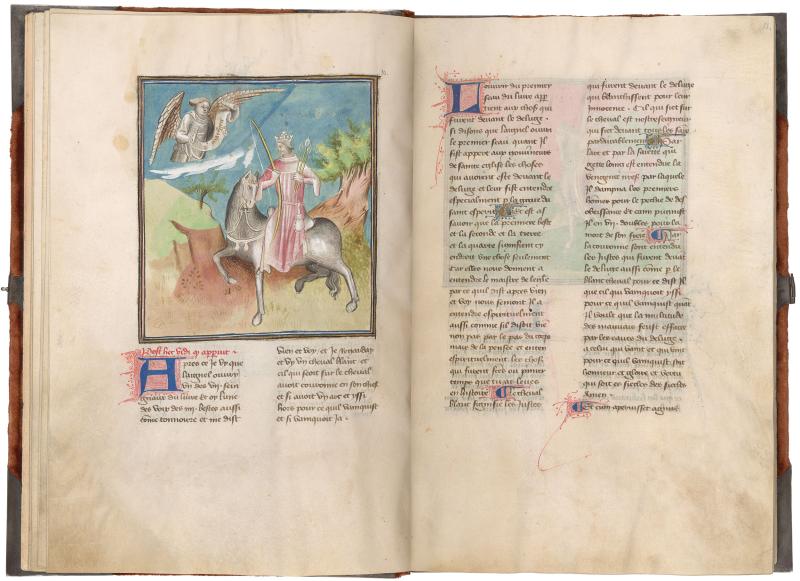 Post hec vidi et apparuit
Apres ce Je vy que
laignel ouvry
vn des vii sein
gnaux du livre et oy lune
des voix des iiii bestes aussi
come tonnoirre et me dist
vien et voy et Je regarday
et vy vn cheval blanc et
cil qui seoit sur le cheval
avoit couronne en son chief
et si avoit vn arc et yssi
hors pour ce quil vainquist
et si vainquoit Ja
Louvrir du premier
seau du livre apar
tient aux choses qui
furent devant le deluge
si disons que laignel ouvri
le premier seau quant Il
fist appert aux
de sainte eglise les choses
qui avoient este devant le
deluge et leur fist entendre
especialment par la grace du
saint esperit Et est as
savoir que la premiere beste
et la seconde et la tierce
et la quarte signifient cy
endroit vne chose seulement
Car elles nous donnent a
entendre le maistre de leglise
par ce quil dist apres vien
et voy nous semont Il a
entendre espirituelment
aussi comme sil disoit vie
non par par le pas du corps
mais de la pensee et enten
espirituelment les choses
qui furent
temps
en listoire Le cheval
blanc signifie les Justes
qui furent devant le deluge
qui blanchissent pour leur
Innocence Cil qui siet sur
le cheval est nostre seigneur
qui siet devant tous les sains
pardurablement Par
larc et par la saiette qui
gette loing est entendue la
vengence par laquele
Il dampna les premiers
homes pour le peche de des
obeissance et caim punist
Il en vii doubles pour la
mort de son frere Par
la couronne sont entendu
les Justes qui furent devant
le deluge aussi come par le
blanc cheval pour ce dist Il
que cil qui vainquoit yssi
pour ce quil vainquist quar
Il voult que la multitude
des mauvais feust effacee
par les eaues du deluge
a celui qui vaint et qui vint
pour ce quil vainquist soit
honneur et gloire et vertu
qui soit es siecles des siecles
Amen
Et cum aperuisset agnus